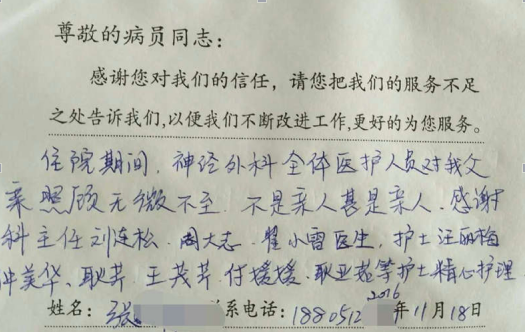 尊敬的病员同志：
感谢您对我们的信任，请您把我们的服务不足
之处告诉我们，以便我们不断改进工作，更好的为您服务。
住院期间，神经外科全体医护人员对我父
亲照顾无微不至，不是亲人甚是亲人，感谢
科主任刘连松、周大志、瞿小雷医生，护士汪丽梅
仲美华、耿芹、王茂芹、付媛媛、职业蕊等护士精心护理
姓名：张 系电话：1880512 2016年11月18日